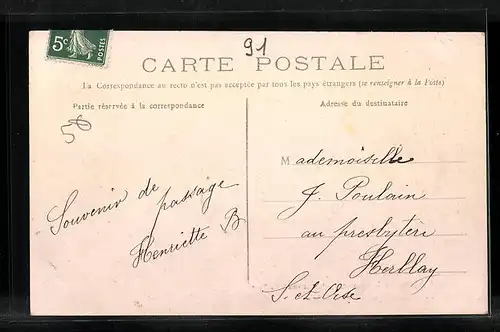 5c
POSTES
91
CARTE POSTALE
La Correspondance au recto n'est pas acceptée par tous les pays étrangers (se renseigner à la Poste)
Partie réservée à la correspondance
Adresse du destinataire
50
Souvenir de passage
Henriette B
Mademoiselle
J. Poulain
au presbytère
Herblay
S. et Oise